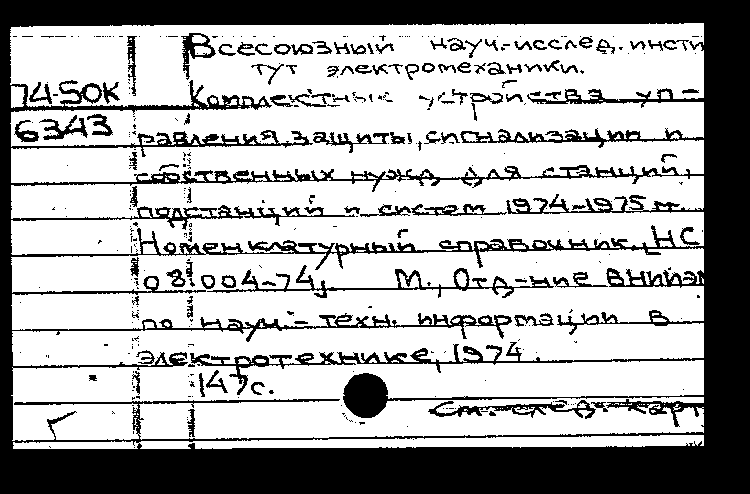 Всесоюзный науч.-исслед. инсти
тут электромеханики.
74-50К
Комплектные устройства уп-
6343
равления, защиты, сигнализации и
собственных нужд для станций,
подстанций и систем 1974-1975 гг.
Номенклатурный справочник. [НС
08.004-74]. М., Отд-ние ВНИИЭМ
по науч.- техн. информации в
электротехнике, 1974.
147с.
См. след. карт